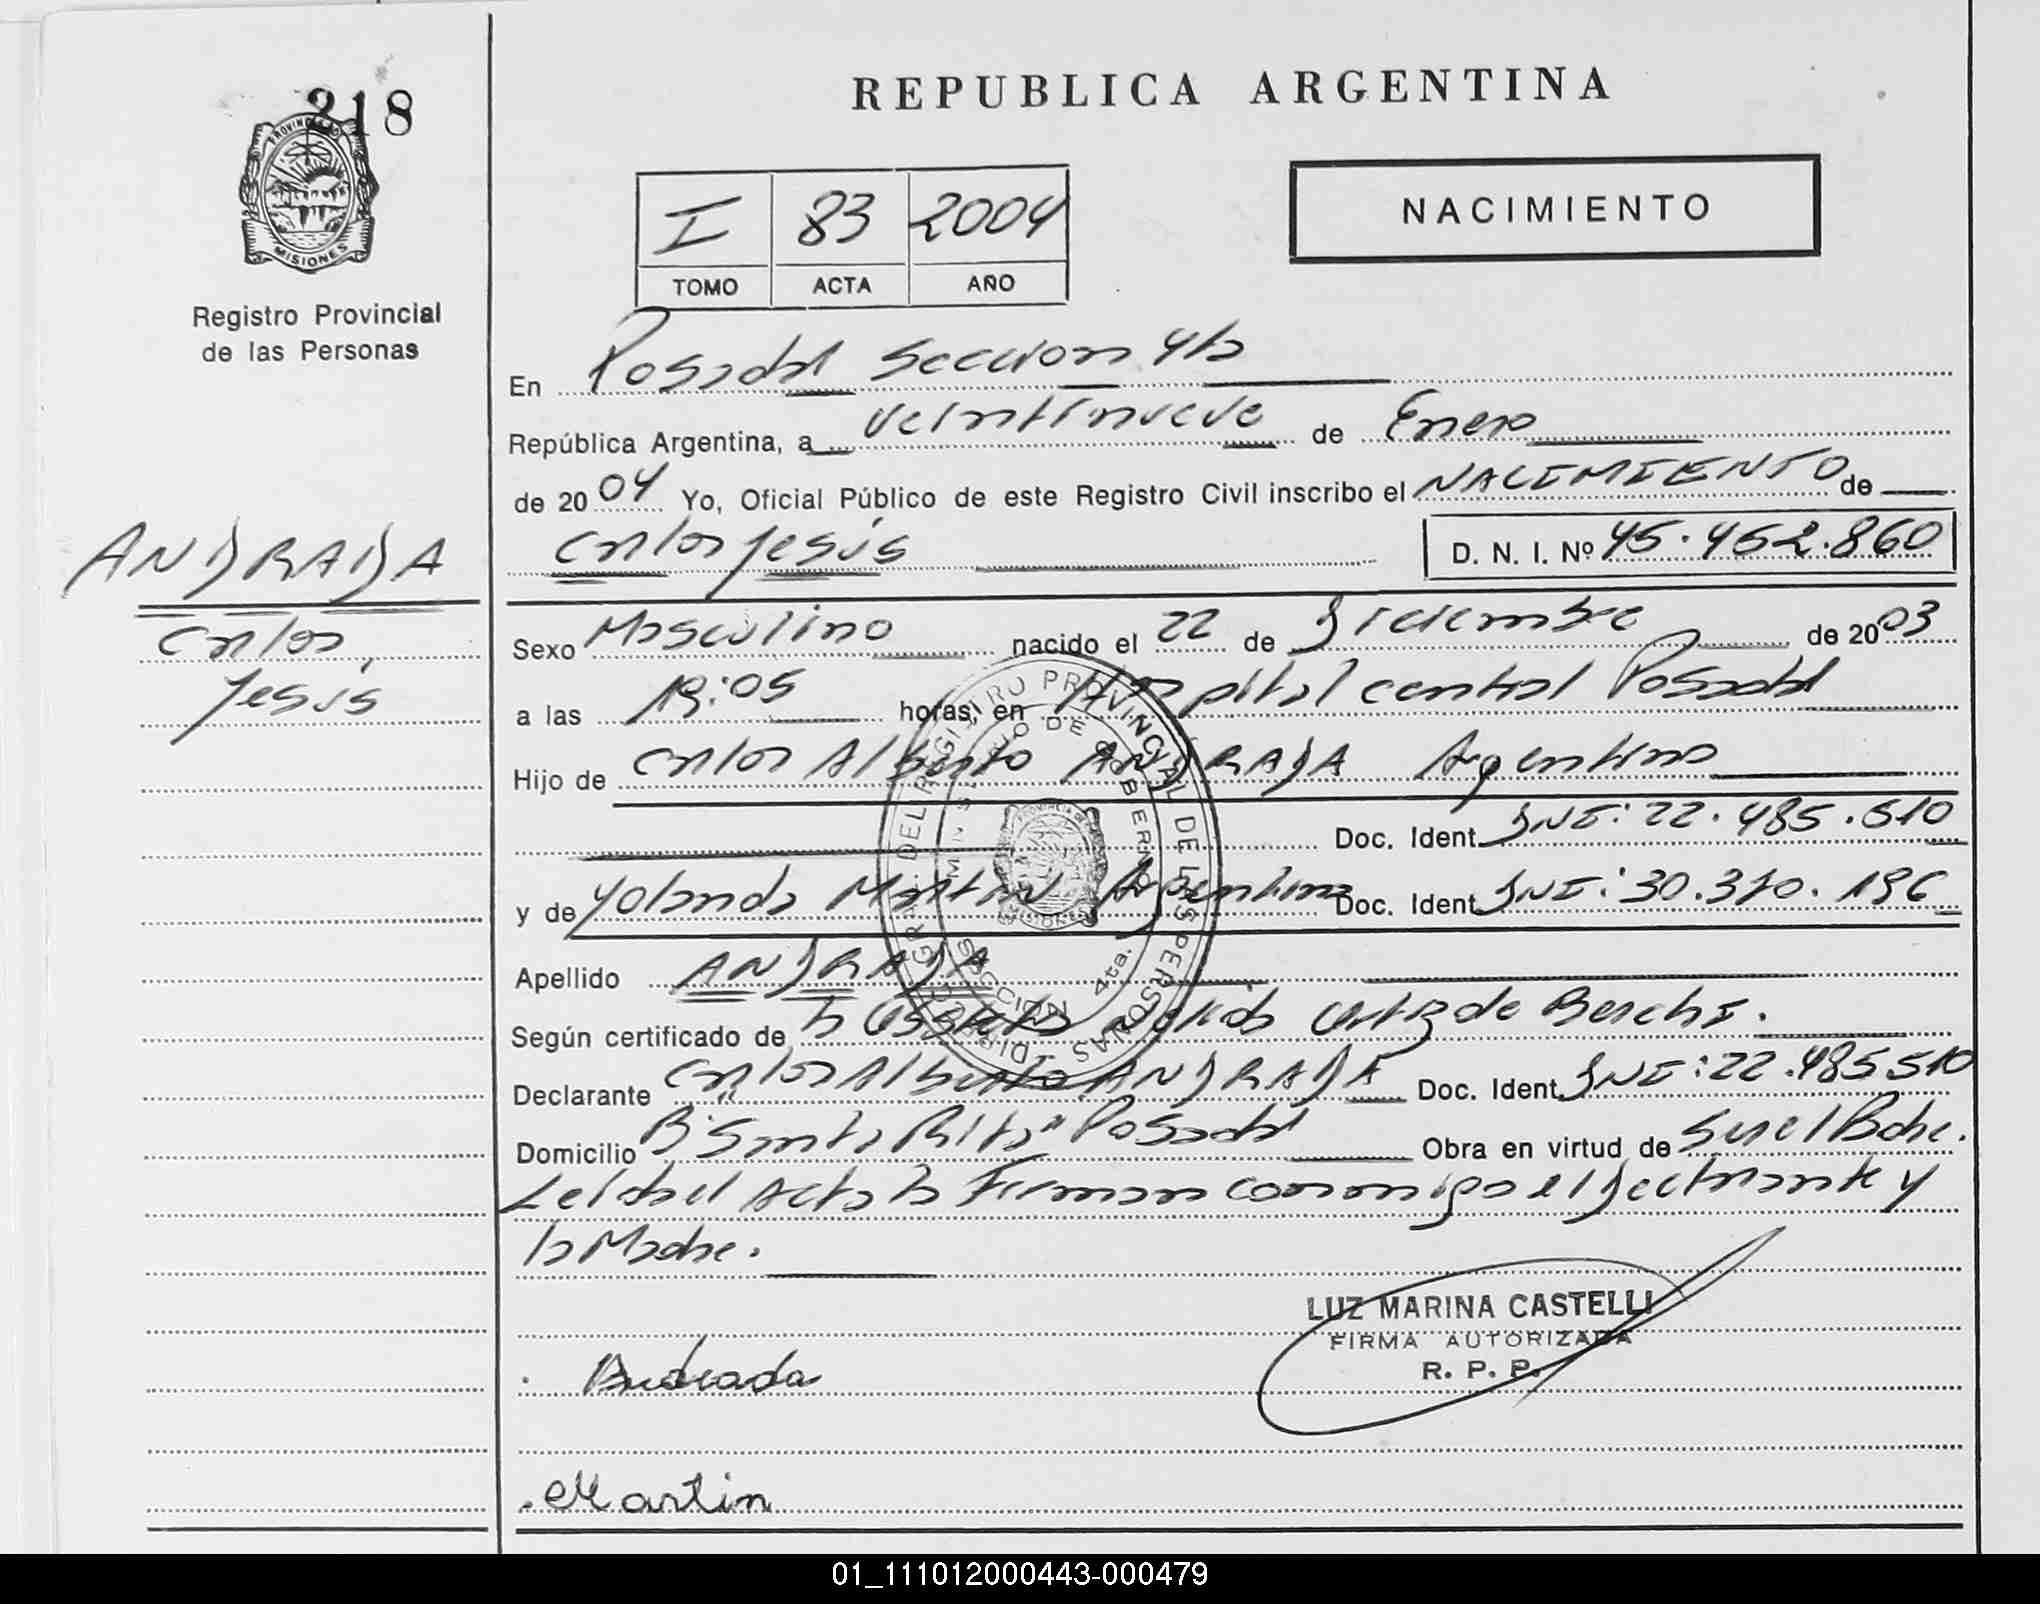 218
PROVINCIA DE
MISIONES
Registro Provincial
de las Personas
REPUBLICA ARGENTINA
I 83 2004
TOMO ACTA AÑO
NACIMIENTO
En Posadas Seccion 4ta
República Argentina, a veintinueve de Enero
de 2004 Yo, Oficial Público de este Registro Civil inscribo el NACIMIENTO de
Carlos Jesús D. N. I. Nº 45.452.860
ANDRADA
Carlos
Jesús
Sexo Masculino nacido el 22 de Diciembre de 2003
a las 19:05 horas, en Hospital central Posadas
Hijo de Carlos Alberto ANDRADA Argentino
Doc. Ident. DNI: 22.485.510
y de Yolanda Martin Argentina Doc. Ident. DNI: 30.370.196
Apellido ANDRADA
Según certificado de la Obstetra Ortiz de
Declarante Carlos Alberto ANDRADA Doc. Ident. DNI: 22.485510
Domicilio B "Santa Rita" Posadas Obra en virtud de Ser el Padre.
Leida el Acta la Firman conmigo el Declarante y
la Madre.
DIREC. GRAL. DEL REGISTRO PROVINCIAL DE LAS PERSONAS
MINISTERIO DE GOBIERNO
SECCION 4ta.
LUZ MARINA CASTELLI
FIRMA AUTORIZADA
R. P. P.
Andrada
Martin
01_111012000443-000479